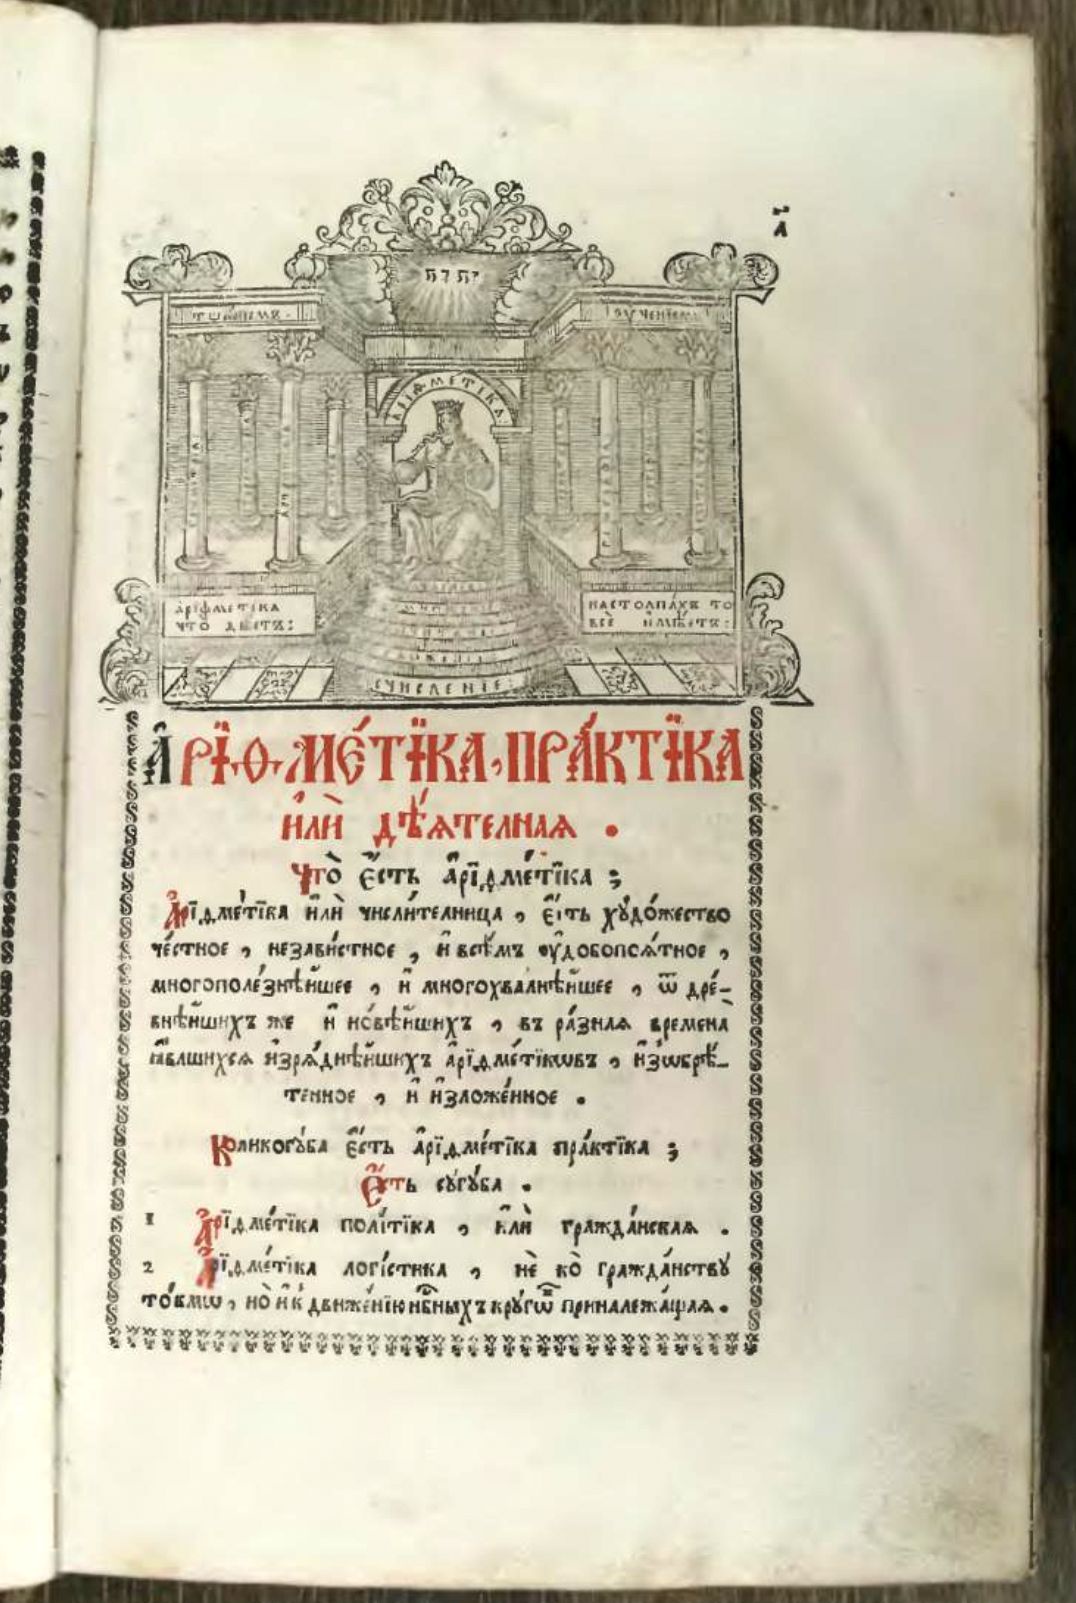 а҃
יהוה
тщанїемъ.
ꙋченїемъ
арїѳметїка
арїѳметїка
что дѣетъ:
на столпахъ то
всѐ имѣетъ:
счисленїе:
А҆рїѳме́тїка пра́ктїка
и҆лѝ дѣ́ѧтелнаѧ .
Что̀ є҆́сть а҆рїѳме́тїка ;
А҆рїѳме́тїка и҆лѝ числи́телница , є҆́сть хꙋдо́жество
че́стное , незави́стное , и҆ всѣ̑мъ ᲂу҆добопоѧ́тное ,
многополе́знѣйшее , и҆ многохва́лнѣйшее , ѿ дре́-
внѣйшихъ же и҆ но́вѣйшихъ , въ ра̑знаѧ времена̀
ꙗ҆ви́вшихсѧ и҆зрѧ́днѣйшихъ а҆рїѳме́тїкѡвъ , и҆зѡбрѣ́-
тенное , и҆ и҆зложе́нное .
Коликогꙋ́ба є҆́сть а҆рїѳме́тїка пра́ктїка ;
Є҆́сть сꙋгꙋ́ба .
1 А҆рїѳме́тїка полі́тїка , и҆лѝ гражда́нскаѧ .
2 А҆рїѳме́тїка логі́стика , не ко̀ гражда́нствꙋ
то́кмѡ , но̀ и҆ к̾ движе́нїю нб҃ныхъ крꙋгѡ́въ приналежа́щаѧ .